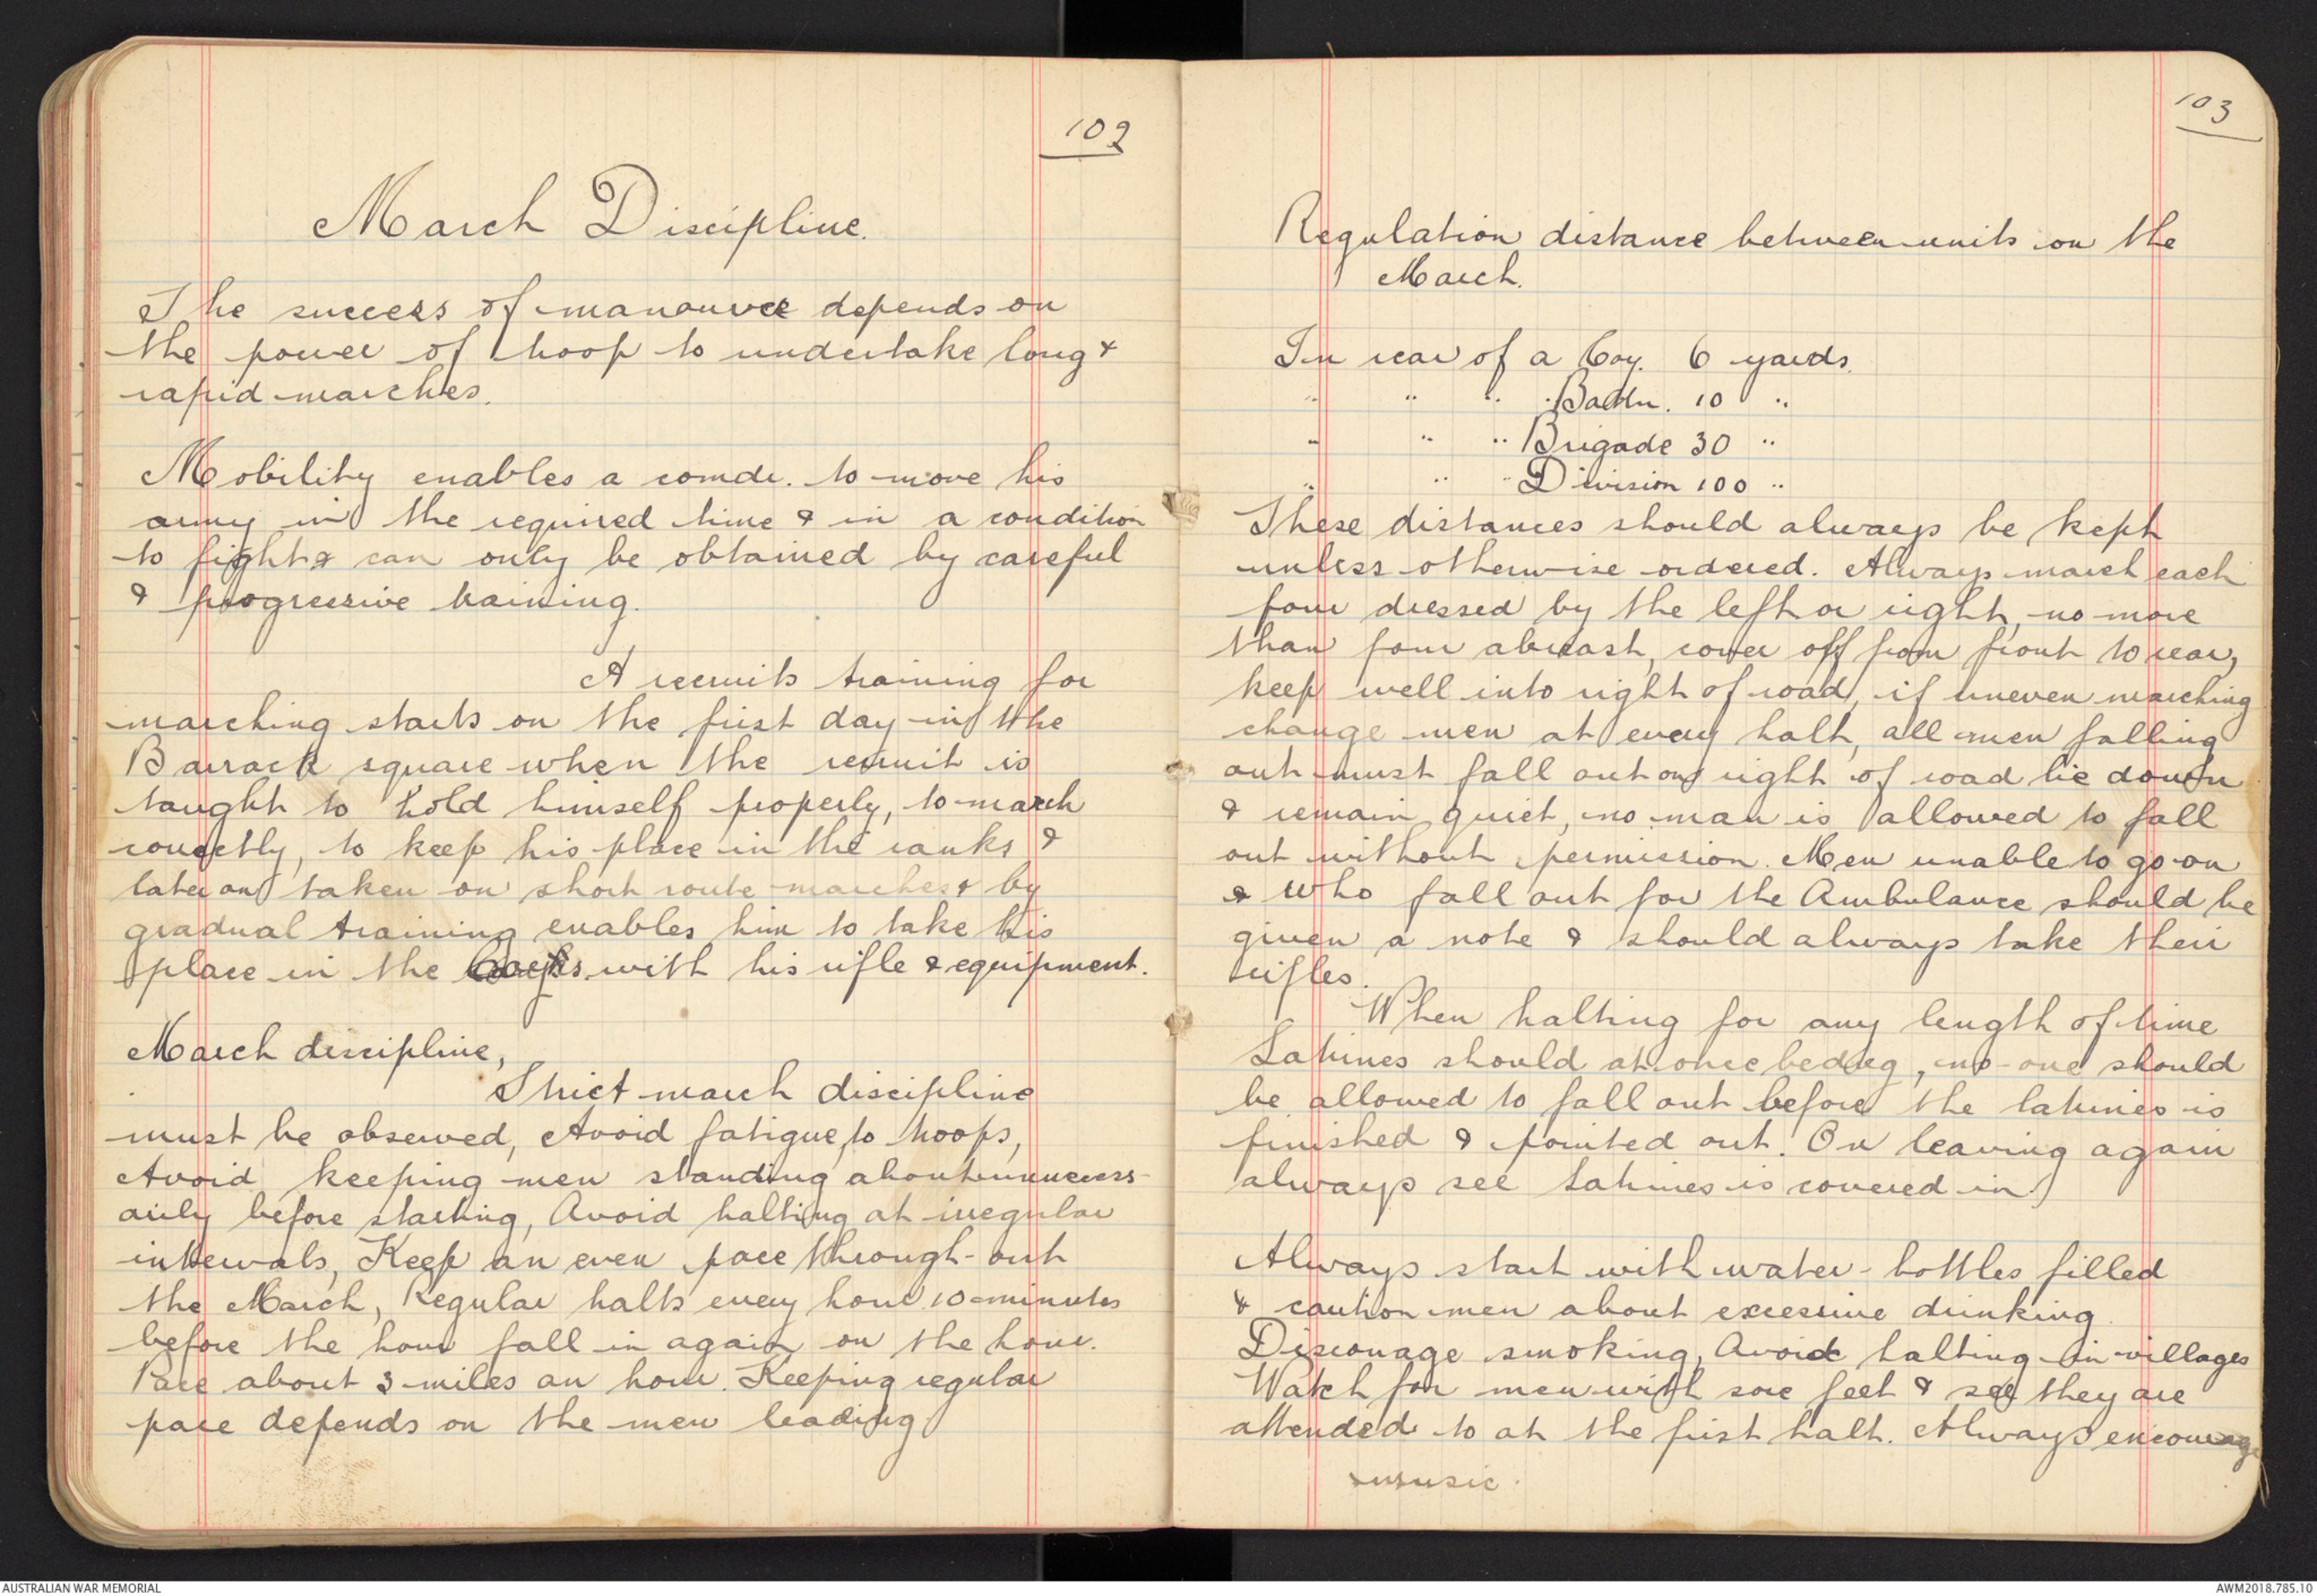 102
March Discipline.
The success of manouvre depends on
the power of troop to undertake long &
rapid marches.
Mobility enables a comdr. to move his
army in the required time & in a condition
to fight & can only be obtained by careful
& progressive training.
A recruits training for
marching starts on the first day in the
Barrack square when the recruit is
taught to hold himself properly, to march
correctly, to keep his place in the ranks &
later on taken on short route marches & by
gradual training enables him to take his
place in the with his rifle & equipment.
March discipline,
Strict march discipline
must be observed, Avoid fatigue, to troops,
Avoid keeping men standing about unnecess-
arily before starting, Avoid halting at irregular
intervals, Keep an even pace through-out
the March, Regular halts every hour 10 minutes
before the hour fall in again on the hour.
Pace about 3 miles an hour. Keeping regular
pace depends on the men leading
103
Regulation distance between units on the
March.
In rear of a Coy. 6 yards.
" " " Battn. 10 "
" " " Brigade 30 "
" " " Division 100 "
These distances should always be kept
unless otherwise ordered. Always march each
four dressed by the left or right, no more
than four abreast, cover off from front to rear,
keep well into right of road, if uneven marching
change men at every halt, all men falling
out must fall out on right of road lie down
& remain quiet, no man is allowed to fall
out without permission. Men unable to go on
& who fall out for the Ambulance should be
given a note & should always take their
rifles.
When halting for any length of time
Latrines should at once be dug, no one should
be allowed to fall out before the latrines is
finished & pointed out. On leaving again
always see Latrines is covered in
Always start with water-bottles filled
& caution men about excessive drinking.
Discourage smoking, Avoid halting in villages
Watch for men with sore feet & see they are
attended to at the first halt. Always encourage
music.
AUSTRALIAN WAR MEMORIAL
AWM2018.785.10